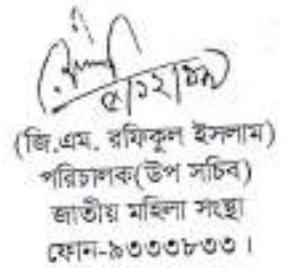 ৫|১২|১৯
(জি.এম. রফিকুল ইসলাম)
পরিচালক(উপ সচিব)
জাতীয় মহিলা সংস্থা
ফোন-৯৩৩৩৮৩৩ ।